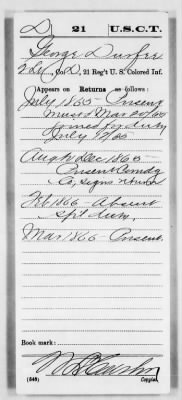 D 21 U.S.C.T.
George Durfee
2 Lt, Co. D, 21 Reg't U. S. Colored Inf.
Appears on Returns as follows:
July 1865 - Present
Must Mar 20/65
Joined for duty
July 9/65
Aug to Dec 1865 -
Present Comdg
Co, signs return
Feb 1866 Absent
Sp'l duty
Mar 1866 Present.
Book mark:
(546) Copyist.